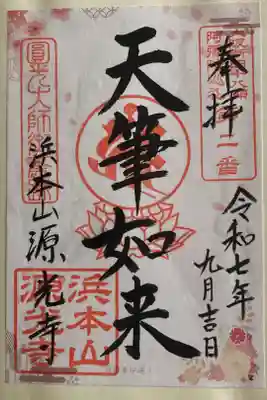 奉拝
一番
令和七年
九月吉日
天筆如来
圓光大師
浜本山源光寺
浜本山
源光寺